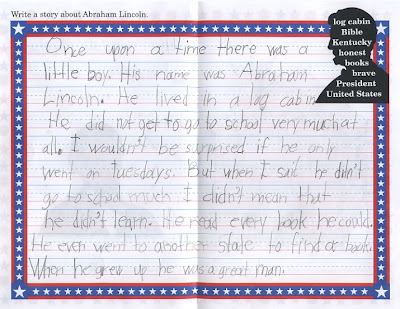 Write a story about Abraham Lincoln.
log cabin
Bible
Kentucky
honest
books
brave
President
United States
Once upon a time there was a
little boy. His name was Abraham
Lincoln. He lived in a log cabin.
He did not get to go to school very much at
all. I wouldn't be surprised if he only
went on Tuesdays. But when I said he didn't
go to school much I didn't mean that
he didn't learn. He read every book he could.
He even went to another state to find a book.
When he grew up he was a great man.